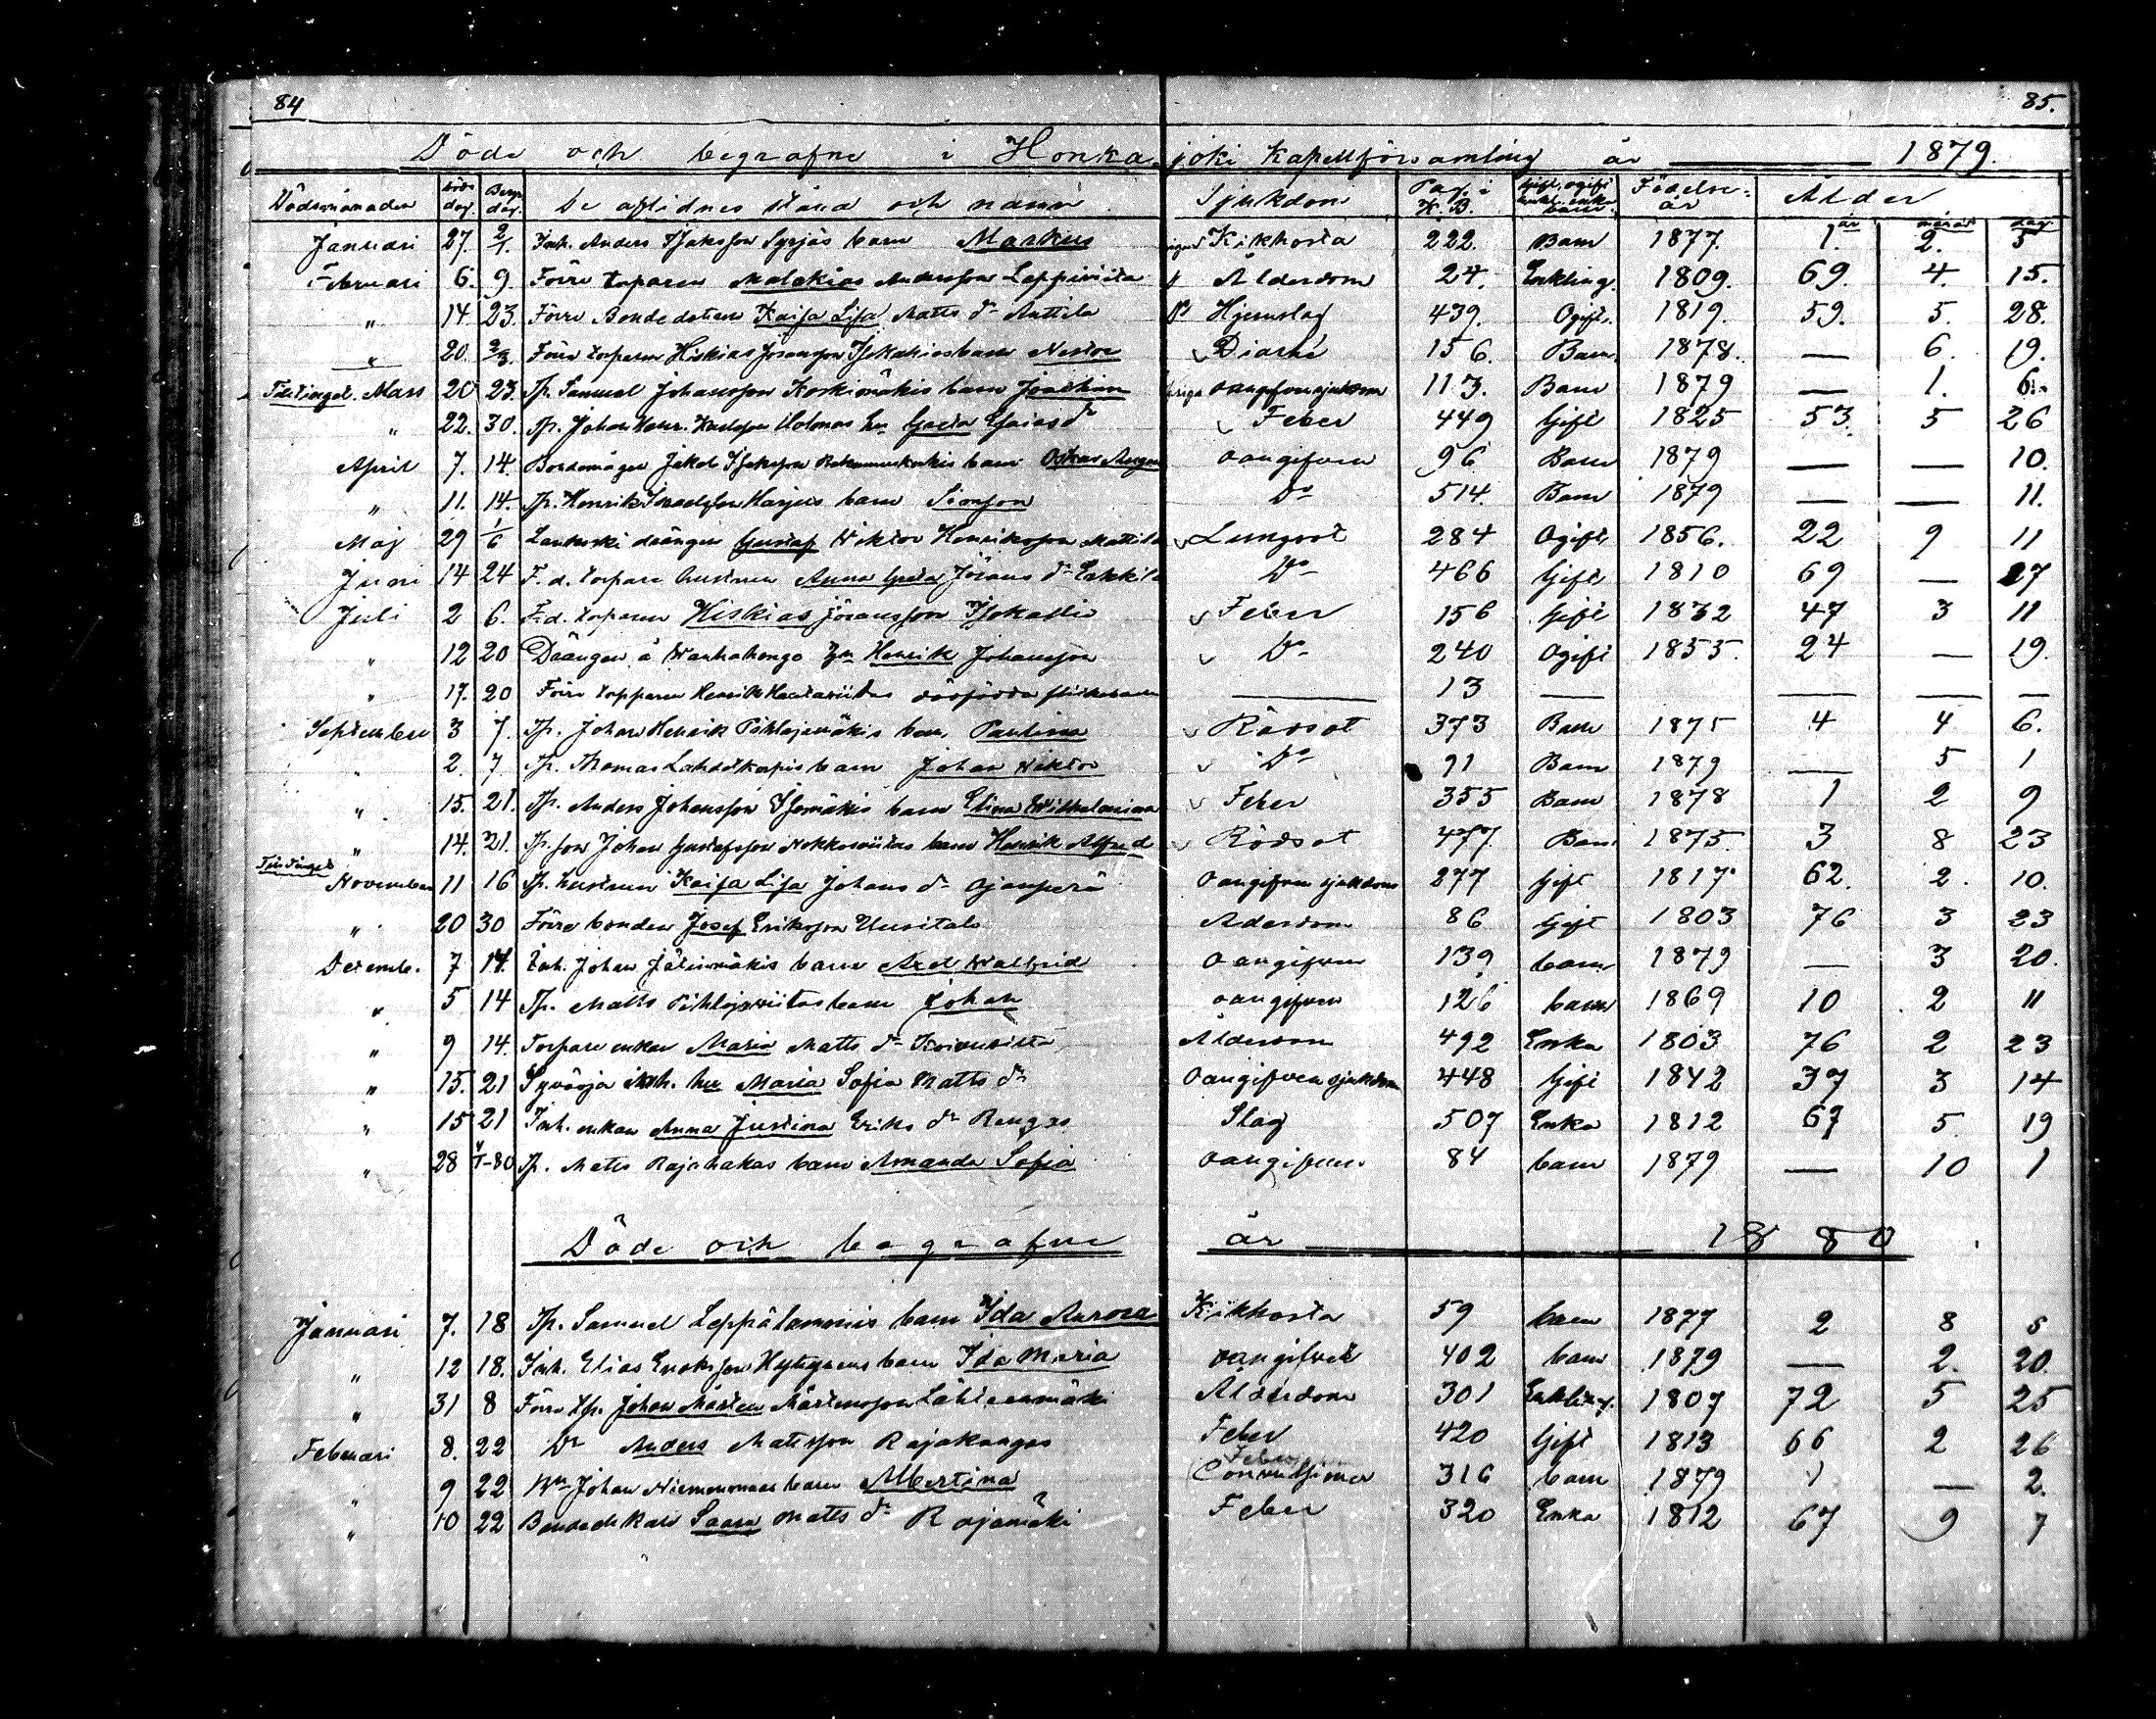 84 85.
Döde och begrafne i Honkajoki Kapellförsamling år 1879.
Dödsmånaden Döds dag. Begr. dag. De aflidnes stånd och namn Sjukdom Pag. i K. B. Gift, ogift enkl. enka barn. Födelse-år Ålder år månad dag
Januari 27. 2/1. Inh. Anders Isaksson Syrjäs barn Markus Kikhosta 222. Barn 1877. 1. 2. 5
Februari 6. 9. Förre torparen Malakias Andersson Leppiniita Ålderdom 24. Enkling. 1809. 69. 4. 15.
" 14. 23. Förre Bondedotren Kaisa Lisa Matts dr Anttila Hjernslag 439. Ogift. 1819. 59. 5. 28.
" 20. 2/3. Förre torparen Hiskias Jöransson Isokallios barn Nestor Diarhé 156. Barn 1878. — 6. 19.
Mars 20 23. Tp. Samuel Johansson Koskimäkis barn Joachim oangifven sjukdom 113. Barn 1879 — 1. 6.
" 22. 30. Tp. Johan Henr. Karlsson hu Greta Esaias dr Feber 449 Gift 1825 53. 5 26
April 7. 14. Bondemågen Jakob Isaksson barn Oskar oangifven 96 Barn 1879 — — 10.
" 11. 14. Tp. Henrik Israelsson Harjus barn Simson Do 514. Barn 1879 — — 11.
Maj 29 1/6 Lauhoski drängen Gustaf Wiktor Henriksson Mattila Lungsot 284 Ogift 1856. 22 9 11
Juni 14 24 F. d. torpare hustrun Anna Greta Jörans dr Do 466 Gift 1810 69 — 27
Juli 2 6. F. d. torparen Hiskias Jöransson Isokallio Feber 156 Gift 1832 47 3 11
" 12 20 Drängen å Wanhakongo Henrik Johansson Do 240 Ogift 1855. 24 — 19.
" 17. 20 Förre torparen Henrik Hautaviitas dödfödda flickebarn — 13 — — — —
September 3 7. Tp. Johan Henrik Pihlajamäkis barn Paulina Rödsot 373 Barn 1875 4 4 6.
" 2. 7 Tp. Thomas Lähdekorpis barn Johan Wiktor Do 91 Barn 1879 — 5 1
" 15. 21. Tp. Anders Johansson Isomäkis barn Elina Wilhelmina Feber 355 Barn 1878 1 2 9
" 14. 21. Tp. son Johan Gustafsson barn Henrik Alfred Rödsot 477. Barn 1875. 3 8 23
November 11 16 Tp. hustrun Kaisa Lisa Johans dr Ojanperä Oangifven sjukdom 277 Gift 1817. 62. 2. 10.
" 20 30 Förre bonden Josef Eriksson Uusitalo Ålderdom 86 Gift 1803 76 3 23
Decemb. 7 14. Inh. Johan barn Axel Walfrid oangifven 139 barn 1879 — 3 20.
" 5 14 Tp. Matts Pihlajaviitas barn Johan oangifven 126 barn 1869 10 2 11
" 9 14. Torpare enkan Maria Matts dr Koivuviita Ålderdom 492 Enka 1803 76 2 23
" 15. 21 Syväoja inh. hu Maria Sofia Matts dr Oangifven sjukdom 448 Gift 1842 37 3 14
" 15 21 Inh. enkan Anna Justina Eriks dr Rengas Slag 507 Enka 1812 67 5 19
" 28 1/1-80 Tp. Matts Rajahakas barn Amanda Sofia oangifven 84 barn 1879 — 10 1
Döde och begrafne år 1880
Januari 7. 18 Tp. Samuel Leppälammis barn Ida Aurora Kikhosta 59 barn 1877 2 8 5
" 12 18. Inh. Elias Enoksson barn Ida Maria oangifvet 402 barn 1879 — 2. 20.
" 31 8 Förre tp. Johan Mårten Mårtensson Lähteenmäki Ålderdom 301 Enkling. 1807 72 5 25
Februari 8. 22 Do Anders Mattsson Rajakangas Feber 420 Gift 1813 66 2 26
Feber
" 9 22 Johan Niemonmaas barn Albertina Convulsioner 316 barn 1879 1 — 2.
" 10 22 Saara Matts dr Rajamäki Feber 320 Enka 1812 67 9 7